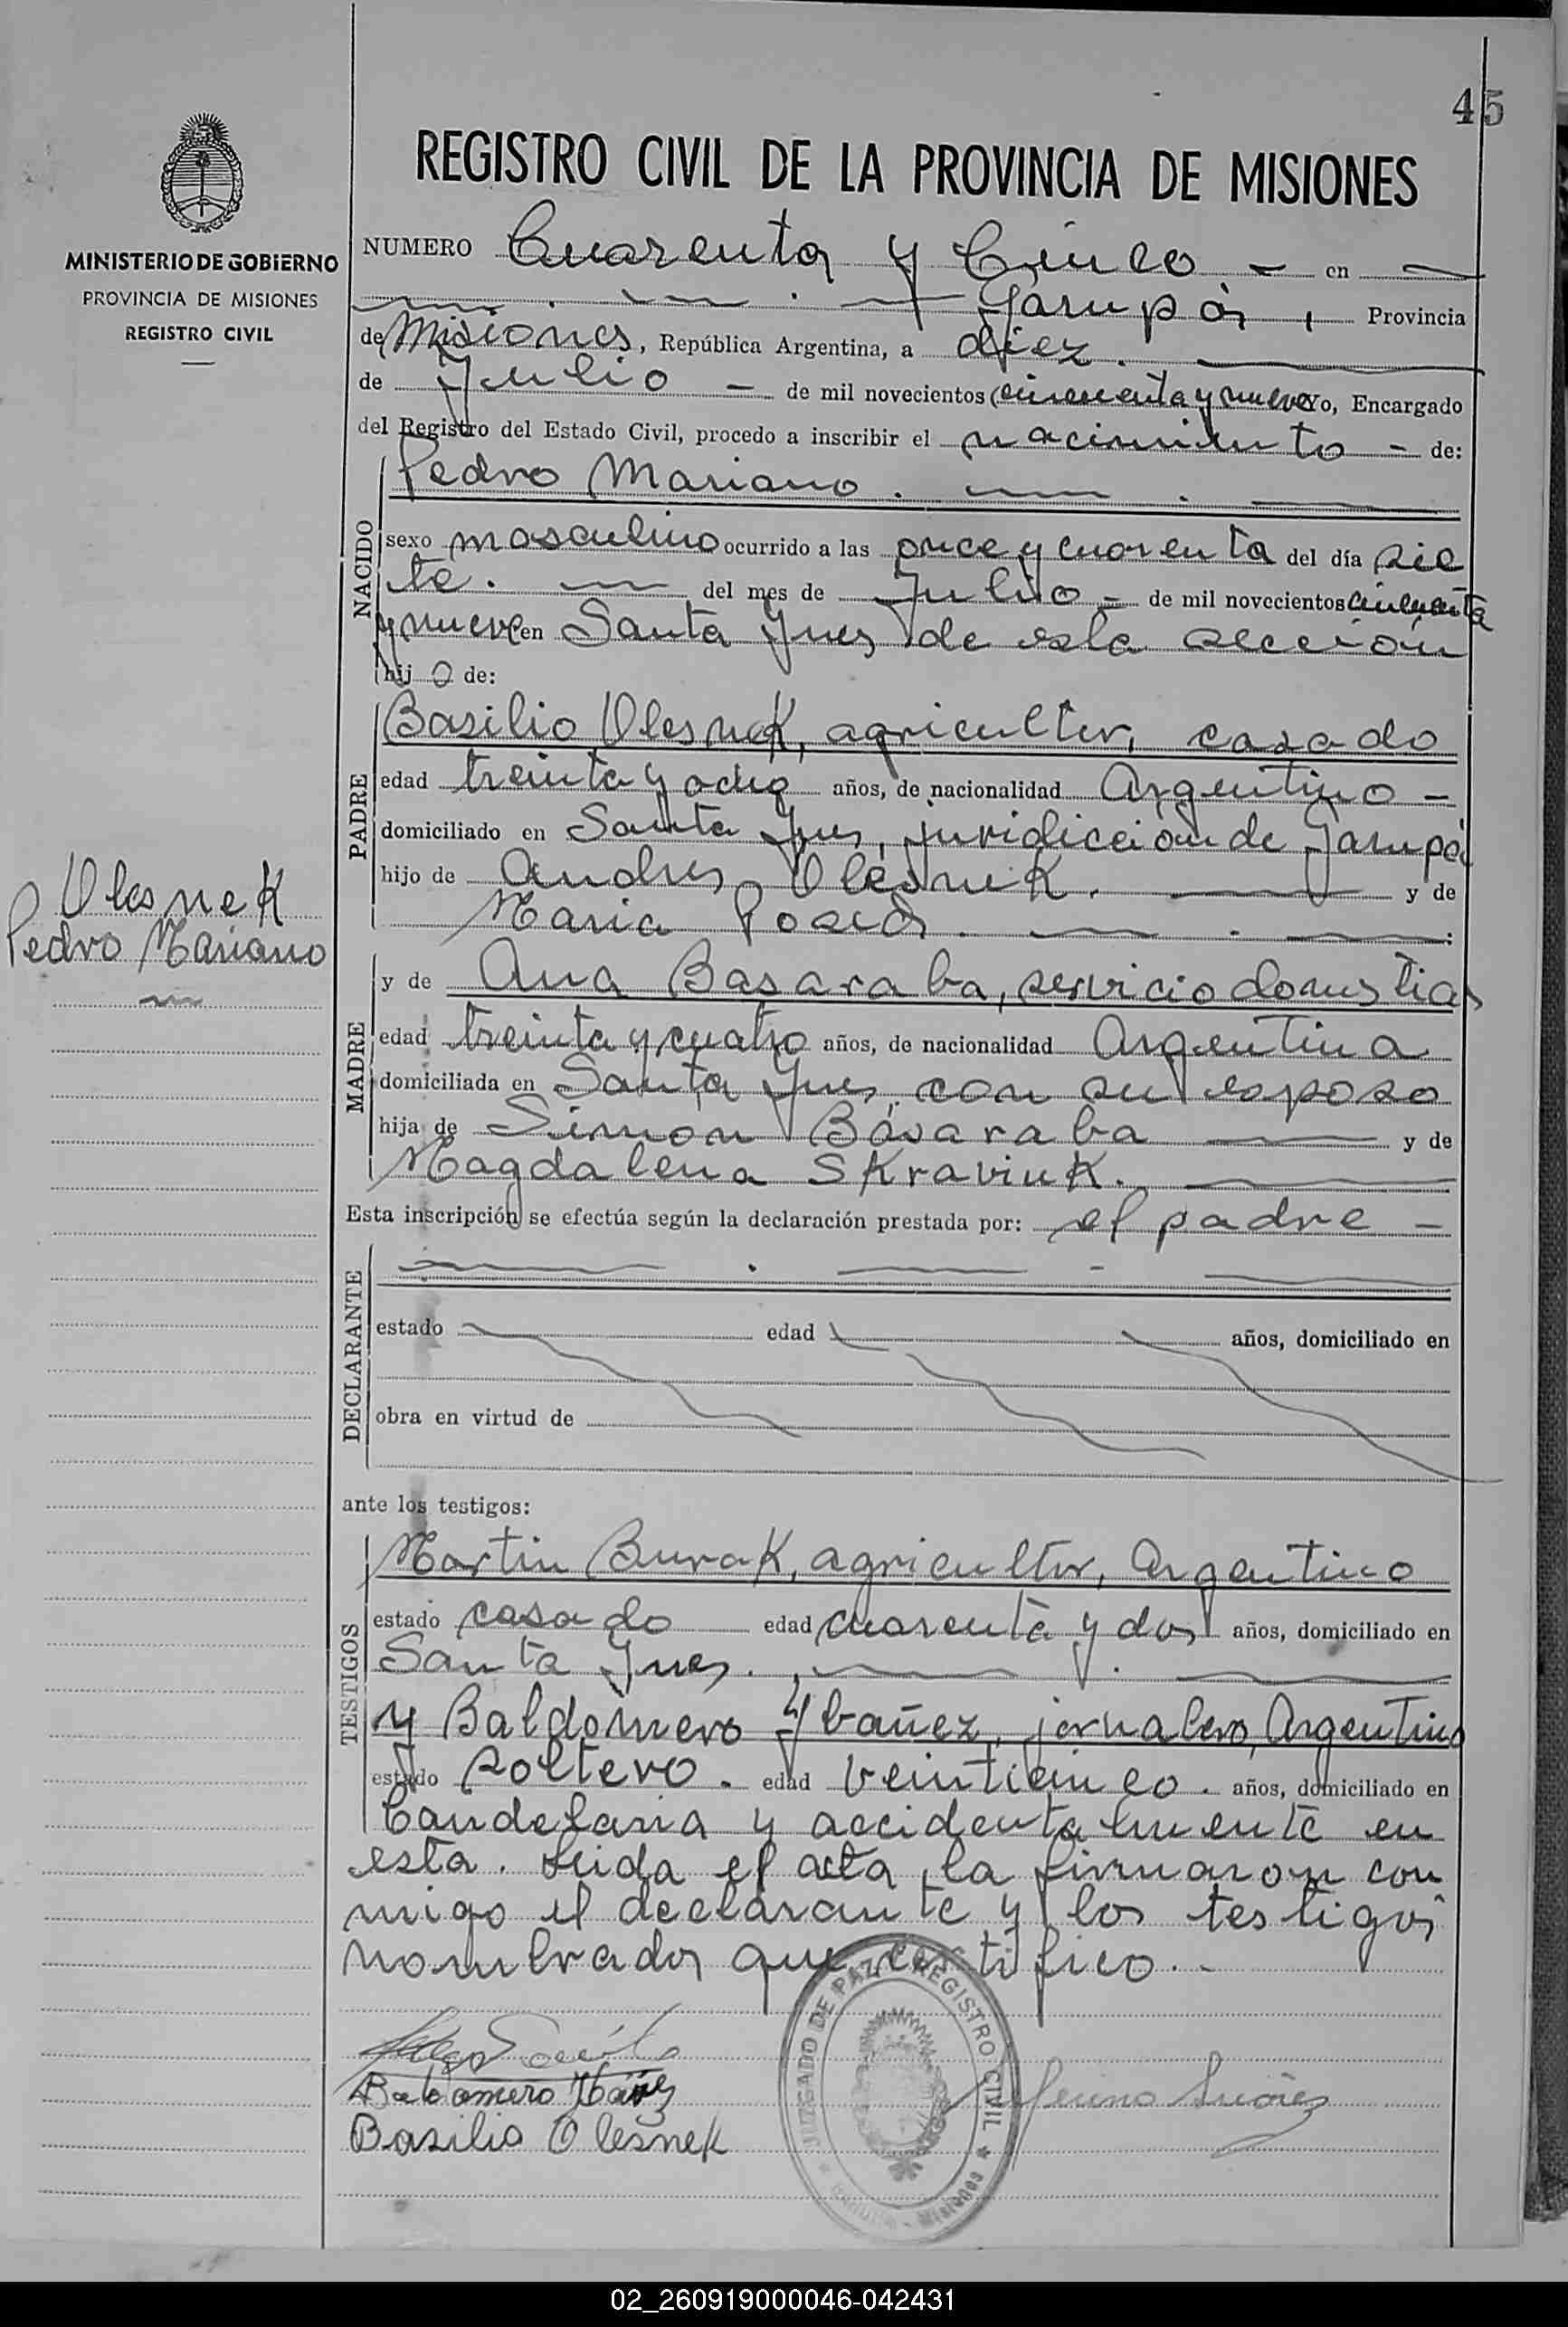 45
REGISTRO CIVIL DE LA PROVINCIA DE MISIONES
MINISTERIO DE GOBIERNO
PROVINCIA DE MISIONES
REGISTRO CIVIL
NUMERO Cuarenta y Cinco - en
Garupá, Provincia
de Misiones, República Argentina, a diez.
de Julio - de mil novecientos cincuenta y nueve Yo, Encargado
del Registro del Estado Civil, procedo a inscribir el nacimiento - de:
Pedro Mariano.
NACIDO
sexo masculino ocurrido a las once y cuarenta del día sie
te. del mes de Julio - de mil novecientos cincuenta
y nueve en Santa Ynes de esta sección
hijo de:
PADRE
Basilio Olesnek, agricultor, casado
edad treinta y ocho años, de nacionalidad Argentino -
domiciliado en Santa Ynes, juridiccion de Garupá
hijo de Andres Olesnek. y de
Maria
Olesnek
Pedro Mariano
MADRE
y de Ana Basaraba, servicio domestico
edad treinta y cuatro años, de nacionalidad Argentina
domiciliada en Santa Ynes, con su esposo
hija de Simon Basaraba y de
Magdalena Skraviuk.
Esta inscripción se efectúa según la declaración prestada por: el padre -
DECLARANTE
estado edad años, domiciliado en
obra en virtud de
ante los testigos:
TESTIGOS
Martin Burak, agricultor, Argentino
estado casado edad cuarenta y dos años, domiciliado en
Santa Ynes.
y Baldomero Ybañez, jornalero, Argentino
estado soltero. edad veinticinco. años, domiciliado en
Candelaria y accidentalmente en
esta. Leida el acta, la firmaron con
migo el declarante y los testigos
nombrados que certifico.
JUZGADO DE PAZ Y REGISTRO CIVIL
Misiones
Baldomero Ibañes
Basilio Olesnek
02_260919000046-042431